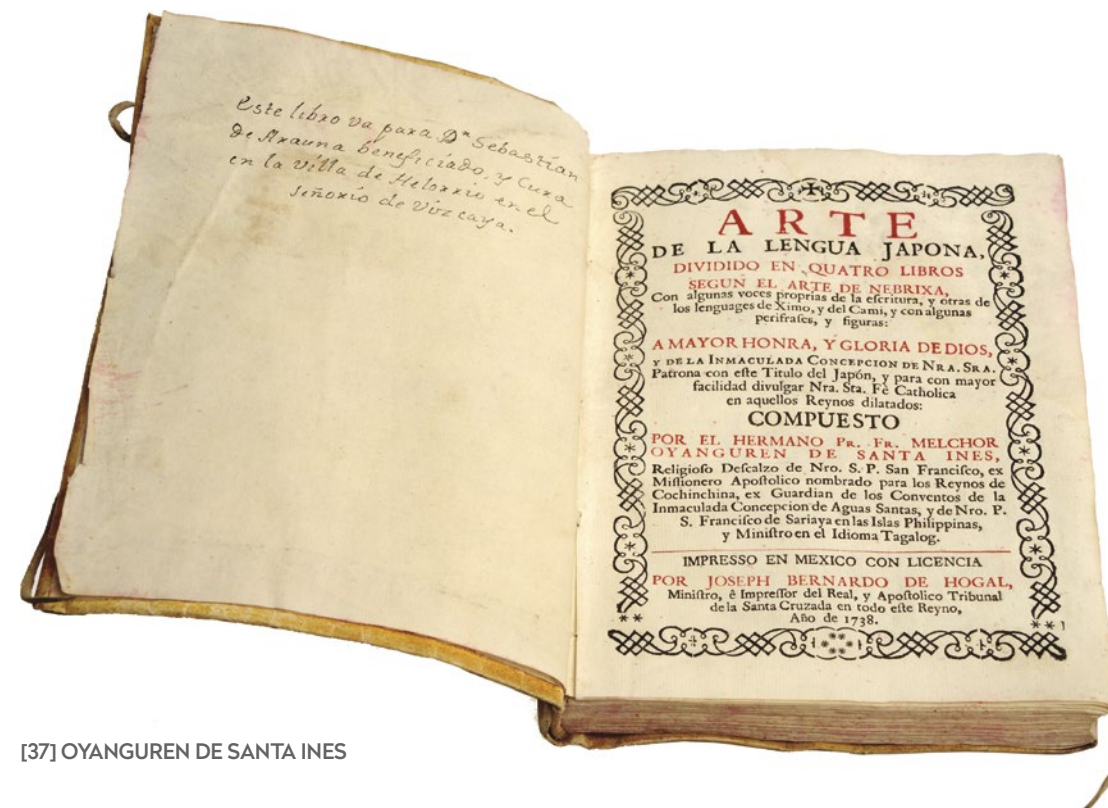 Este libro va para Dn Sebastían
de Arauna beneficiado, y Cura
en la villa de Helorrio en el
señorío de Vizcaya.
ARTE
DE LA LENGUA JAPONA,
DIVIDIDO EN QUATRO LIBROS
SEGUN EL ARTE DE NEBRIXA,
Con algunas voces proprias de la eſcritura, y otras de
los lenguages de Ximo, y del Cami, y con algunas
perifraſes, y figuras:
A MAYOR HONRA, Y GLORIA DE DIOS,
Y DE LA INMACULADA CONCEPCION DE NRA. SRA.
Patrona con eſte Titulo del Japón, y para con mayor
facilidad divulgar Nra. Sta. Fè Catholica
en aquellos Reynos dilatados:
COMPUESTO
POR EL HERMANO PR. FR. MELCHOR
OYANGUREN DE SANTA INES,
Religioſo Deſcalzo de Nro. S. P. San Franciſco, ex
Miſsionero Apoſtolico nombrado para los Reynos de
Cochinchina, ex Guardian de los Conventos de la
Inmaculada Concepcion de Aguas Santas, y de Nro. P.
S. Franciſco de Sariaya en las Islas Philippinas,
y Miniſtro en el Idioma Tagalog.
IMPRESSO EN MEXICO CON LICENCIA
POR JOSEPH BERNARDO DE HOGAL,
Miniſtro, è Impreſſor del Real, y Apoſtolico Tribunal
de la Santa Cruzada en todo eſte Reyno,
Año de 1738.
[37] OYANGUREN DE SANTA INES